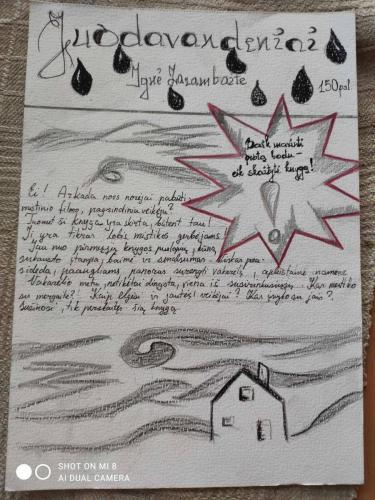 Juodavandeniai
Ignė Zarambaitė
150 psl.
Bask marinti
protą badu –
eik skaityti knygą!
Ei! Ar kada nors norėjai pabūti
mistinio filmo pagrindiniu veikėju?
Tuomet ši knyga yra skirta būtent tau!
Ji yra tikras lobis mistikos gerbėjams.
Jau nuo pirmųjų knygos puslapių, būna
sukausto įtampa, baimė ir smalsumas.
sideda, paaugliams panorus surengti vakarėlį apleistame name.
Vakarėlio metu, netikėtai dingsta viena iš susirinkusiųjų. Kas nutiko
su mergaite? Kaip elgėsi ir jautėsi veikėjai? Kas įvyko su jais?
Sužinosi, tik perskaitęs šią knygą.
SHOT ON MI 8
AI DUAL CAMERA